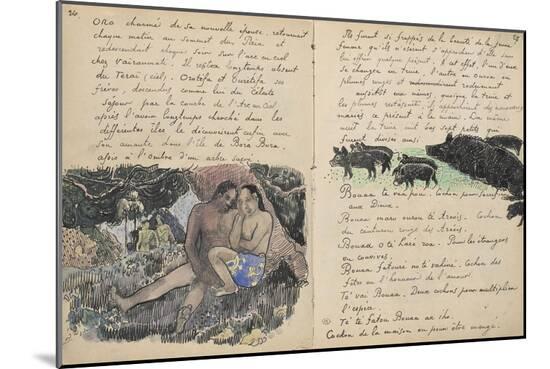 26.
ORO charmé de sa nouvelle épouse retournait
chaque matin au sommet du Paia et
redescendait chaque soir sur l'arc en ciel
chez Vairaumati. Il resta longtemps absent
du Terai (ciel). Orotefa et Ouretefa ses
frères, descendus comme lui du Céleste
Séjour par la courbe de l'Arc en Ciel
après l'avoir longtemps cherché dans les
différentes îles le découvrirent enfin avec
son amante dans l'île de Bora Bora.
assis à l'ombre d'un arbre sacré
Ils furent si frappés de la beauté de la jeune
femme qu'ils n'osèrent s'approcher d'elle sans
lui offrir quelque présent. A cet effet, l'un d'eux
se changea en truie, l'autre en Ouron en
plumes rouges et redevenant
aussitôt eux mêmes, quoique la truie et
les plumes restassent, ils apportèrent aux nouveaux
mariés ce présent à la main. La même
nuit la truie mit bas sept petits qui
furent divisés ainsi.
Bouaa
Cochon pour sacrifier
aux Dieux.
Bouaa maro ouroa té Arëois. Cochon
du ceinturon rouge des Arëois.
Bouaa
Pour les étrangers
ou convives.
Bouaa fatoure no té vahiné. Cochon des
fêtes en l'honneur de l'amour.
Té vai Bouaa. Deux cochons pour multiplier
l'espèce.
Té té fatou Bouaa
Cochon de la maison ou pour être mangé.